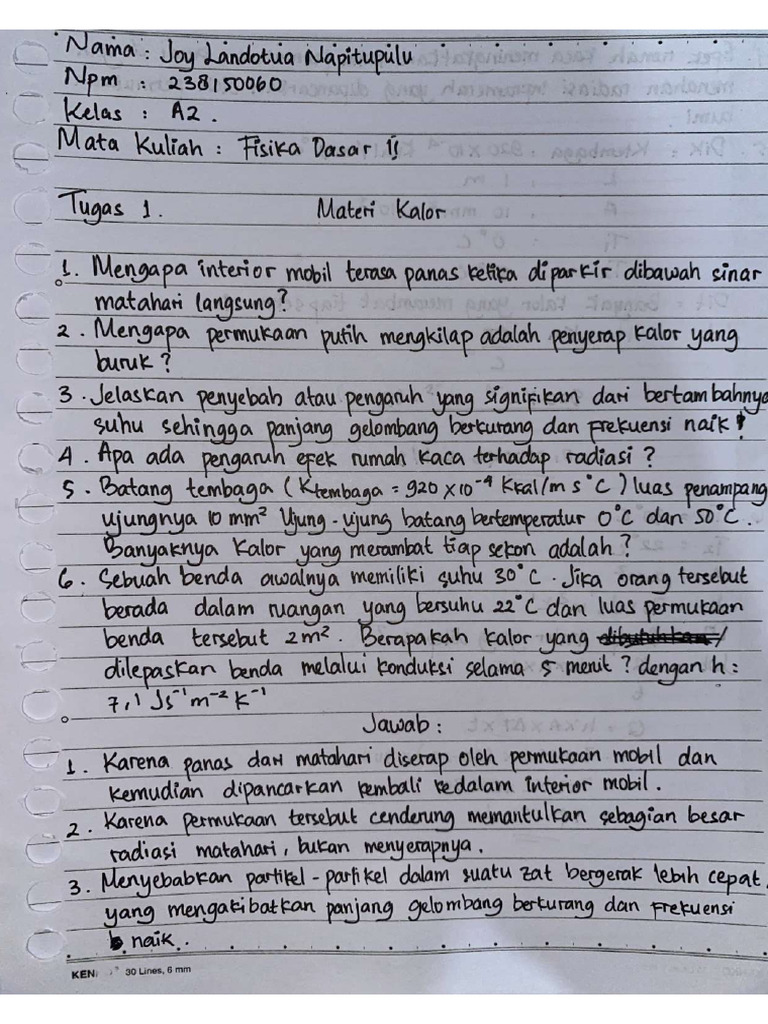 Nama : Joy Landotua Napitupulu
Npm : 238150060
Kelas : A2.
Mata Kuliah : Fisika Dasar II
Tugas 1. Materi Kalor
1. Mengapa interior mobil terasa panas ketika diparkir dibawah sinar
matahari langsung?
2. Mengapa permukaan putih mengkilap adalah penyerap kalor yang
buruk?
3. Jelaskan penyebab atau pengaruh yang signifikan dari bertambahnya
suhu sehingga panjang gelombang berkurang dan frekuensi naik!
4. Apa ada pengaruh efek rumah kaca terhadap radiasi?
5. Batang tembaga (Ktembaga = 920 x 10⁻⁴ Kkal/m s °C) luas penampang
ujungnya 10 mm² Ujung-ujung batang bertemperatur 0°C dan 50°C.
Banyaknya Kalor yang merambat tiap sekon adalah?
6. Sebuah benda awalnya memiliki suhu 30°C. Jika orang tersebut
berada dalam ruangan yang bersuhu 22°C dan luas permukaan
benda tersebut 2m². Berapakah kalor yang
dilepaskan benda melalui konduksi selama 5 menit? dengan h :
7,1 Js⁻¹ m⁻² K⁻¹
Jawab :
1. Karena panas dari matahari diserap oleh permukaan mobil dan
kemudian dipancarkan kembali kedalam interior mobil.
2. Karena permukaan tersebut cenderung memantulkan sebagian besar
radiasi matahari, bukan menyerapnya.
3. Menyebabkan partikel-partikel dalam suatu zat bergerak lebih cepat,
yang mengakibatkan panjang gelombang berkurang dan frekuensi
naik.
KEN 30 Lines, 6 mm